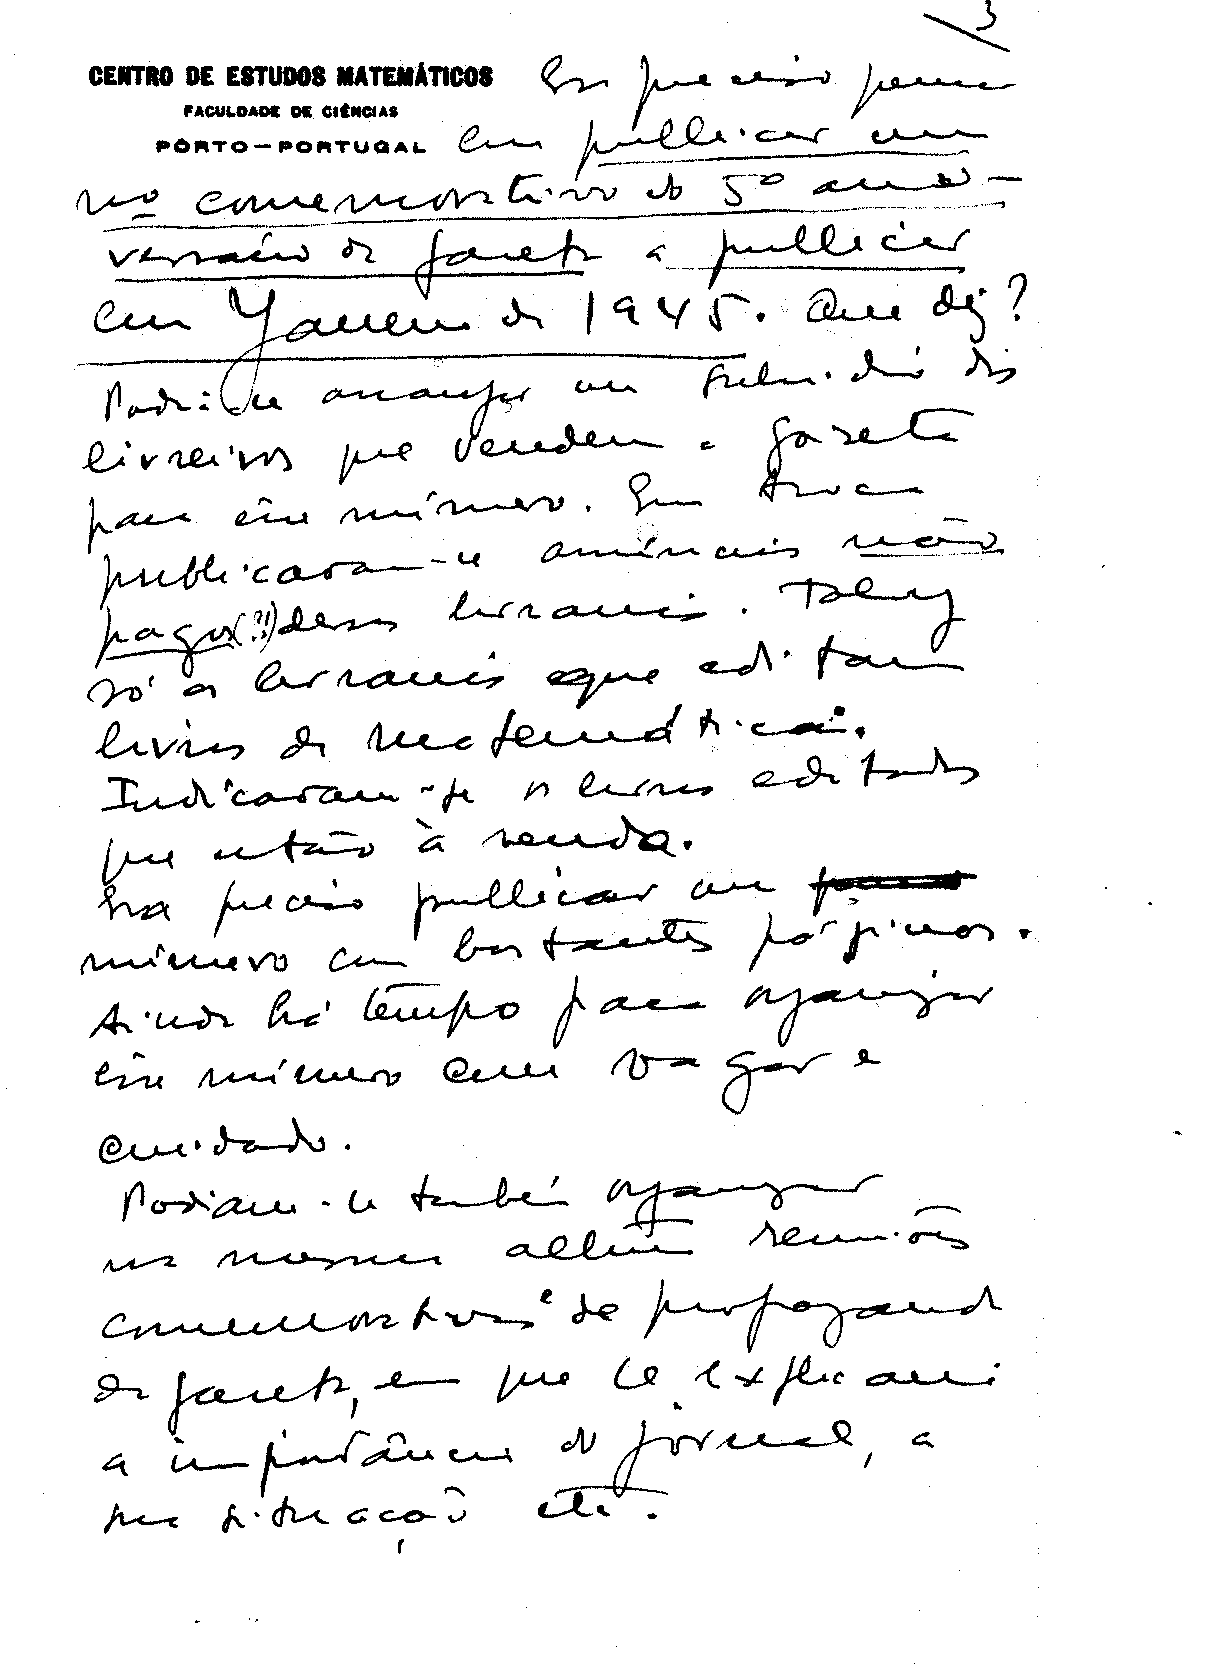 3
CENTRO DE ESTUDOS MATEMÁTICOS
FACULDADE DE CIÊNCIAS
PÔRTO — PORTUGAL
Era preciso pensar
em publicar um
nº comemorativo do 5º ani-
versário da Gazeta a publicar
em Janeiro de 1945. Que diz?
Podia-se arranjar um subsídio dos
livreiros que vendem a Gazeta
para êsse número. Em troca
publicavam-se anúncios não
pagos (?!) dessas livrarias. Talvez
só as livrarias que editam
livros de matemática.
Indicavam-se os livros editados
que estão à venda.
Era preciso publicar um
número com bastantes páginas.
Ainda há tempo para organizar
êsse número com vagar e
cuidado.
Podiam-se também organizar
na mesma altura reuniões
comemorativas e de propaganda
da Gazeta, em que se explicaria
a importância do jornal, a
sua situação etc.